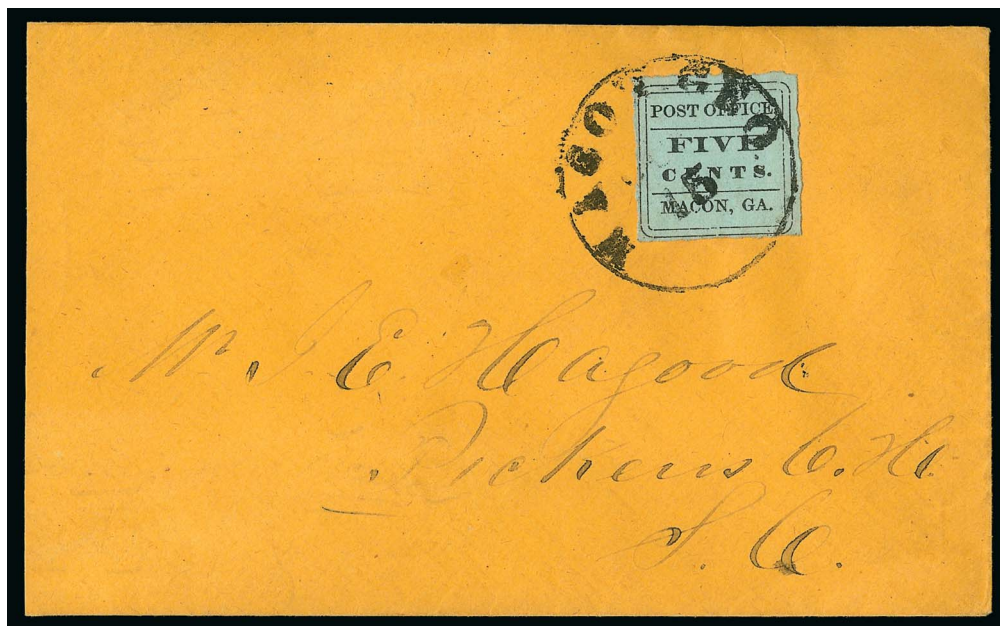 MACON GEO
POST OFFICE
FIVE
CENTS.
MACON, GA.
5
Mr. J. E. Hagood
Pickens C. H.
S. C.